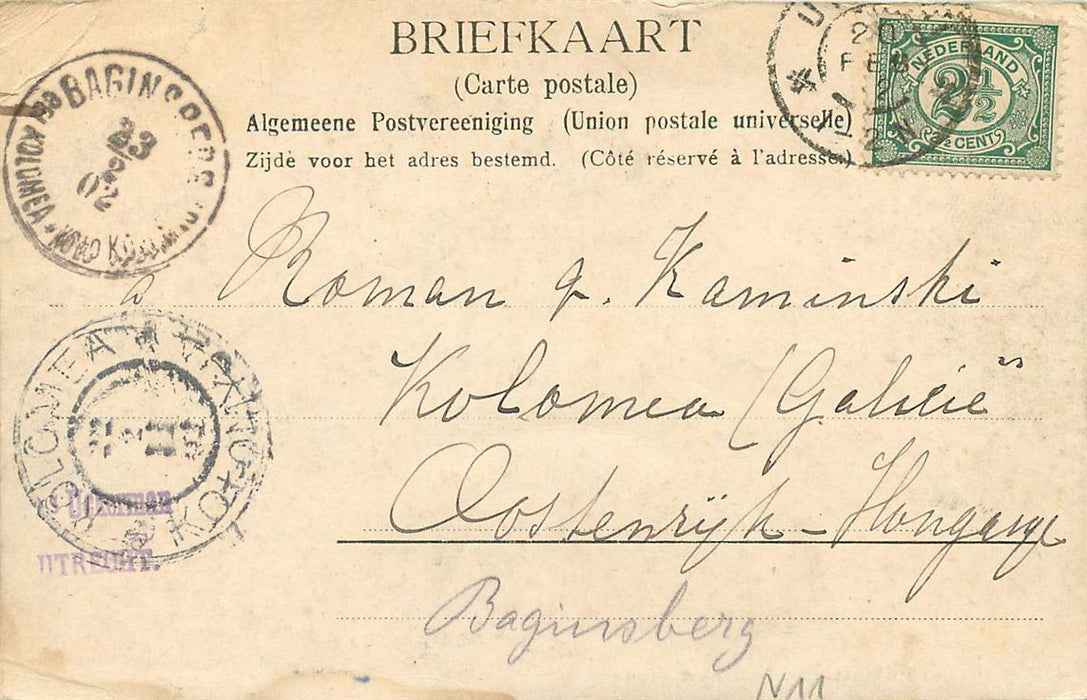 BRIEFKAART
(Carte postale)
Algemeene Postvereeniging (Union postale universelle)
Zijde voor het adres bestemd. (Côté réservé à l'adresse.)
NEDERLAND
2½
2½ CENT
20
FEB
BAGINSBERG
23
2
02
à Roman q. Kaminski
Kolomea (Galicië"
Oostenrijk-Hongarye
KOLOMEA
UTRECHT.
Baginsberg
N11